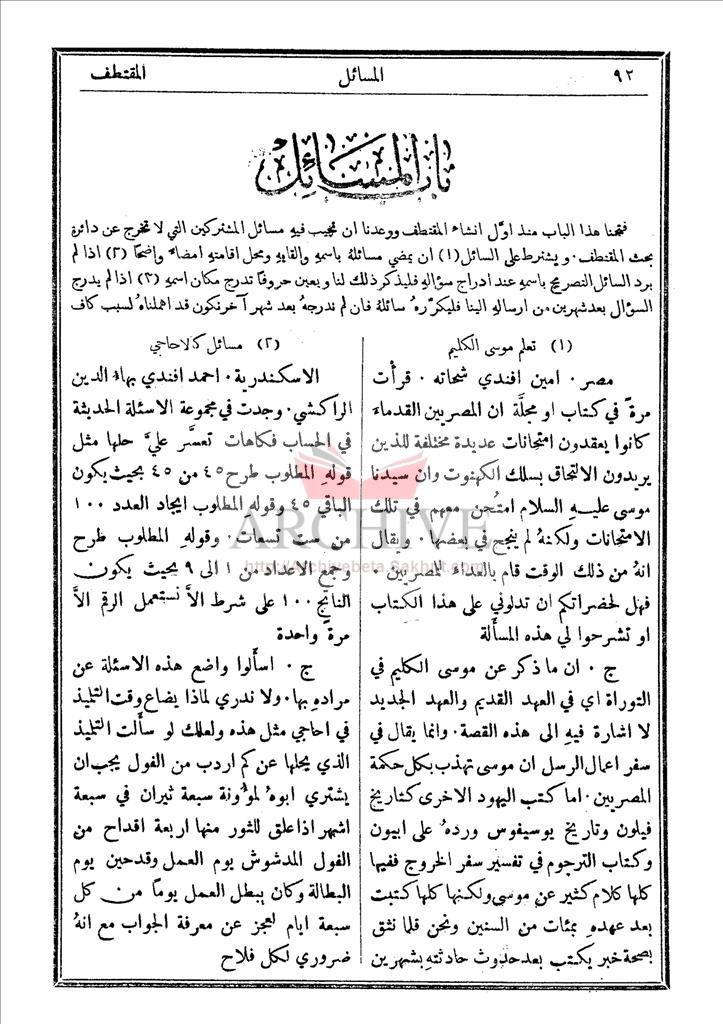 ٩٢ المسائل المقتطف
باب المسائل
فتحنا هذا الباب منذ اوَّل انشاء المقتطف ووعدنا ان نجيب فيه مسائل المشتركين التي لا تخرج عن دائرة
بحث المقتطف. ويشترط على السائل (١) ان يمضي مسائلهُ باسمهِ والقابهِ ومحل اقامتهِ امضاءً واضحًا (٢) اذا لم
يرد السائل التصريح باسمهِ عند ادراج سؤالهِ فليذكر ذلك لنا ويعين حروفًا تدرج مكان اسمهِ (٣) اذا لم يدرج
السؤال بعد شهرين من ارسالهِ الينا فليكرّرهُ سائلهُ فان لم ندرجهُ بعد شهر آخر نكون قد اهملناهُ لسبب كاف
(١) تعلم موسى الكليم
مصر. امين افندي شحاته. قرأْت
مرةً في كتاب او مجلَّة ان المصريين القدماء
كانوا يعقدون امتحانات عديدة مختلفة للذين
يريدون الالتحاق بسلك الكهنوت وان سيدنا
موسى عليهِ السلام امتُحن معهم في تلك
الامتحانات ولكنهُ لم ينجح في بعضها. ويقال
انهُ من ذلك الوقت قام بالعداء للمصريين.
فهل لحضراتكم ان تدلوني على هذا الكتاب
او تشرحوا لي هذه المسأَلة
ج. ان ما ذكر عن موسى الكليم في
التوراة اي في العهد القديم والعهد الجديد
لا اشارة فيهِ الى هذه القصة. وانما يقال في
سفر اعمال الرسل ان موسى تهذب بكل حكمة
المصريين. اما كتب اليهود الاخرى كتاريخ
فيلون وتاريخ يوسيفوس وردهُ على ابيون
وكتاب الترجوم في تفسير سفر الخروج ففيها
كلها كلام كثير عن موسى ولكنها كلها كتبت
بعد عهدهِ بمئات من السنين ونحن قلما نثق
بصحة خبر يكتب بعد حدوث حادثتهِ بشهرين
(٢) مسائل كالاحاجي
الاسكندرية. احمد افندي بهاء الدين
الراكشي. وجدت في مجموعة الاسئلة الحديثة
في الحساب فكاهات تعسَّر عليَّ حلها مثل
قولهِ المطلوب طرح ٤٥ من ٤٥ بحيث يكون
الباقي ٤٥ وقولهِ المطلوب ايجاد العدد ١٠٠
من ست تسعات. وقولهِ المطلوب طرح
وجمع الاعداد من ١ الى ٩ بحيث يكون
الناتج ١٠٠ على شرط الاَّ نستعمل الرقم الاَّ
مرةً واحدة
ج. اسأَلوا واضع هذه الاسئلة عن
مرادهِ بها. ولا ندري لماذا يضاع وقت التلميذ
في احاجي مثل هذه ولعلك لو سأَلت التلميذ
الذي يحلها عن كم اردب من الفول يجب ان
يشتري ابوهُ لمؤونة سبعة ثيران في سبعة
اشهر اذا علق للثور منها اربعة اقداح من
الفول المدشوش يوم العمل وقدحين يوم
البطالة وكان يبطل العمل يومًا من كل
سبعة ايام لعجز عن معرفة الجواب مع انهُ
ضروري لكل فلاح
ARCHIVE
http://Archivebeta.Sakhrit.com